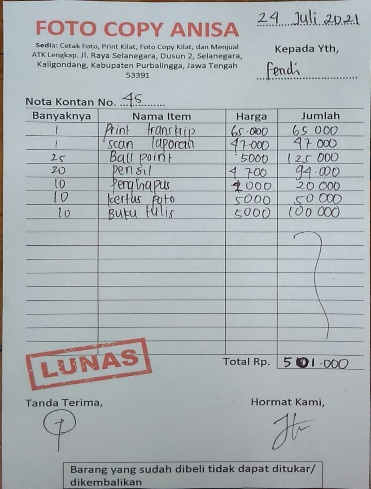 FOTO COPY ANISA
24 Juli 2021
Sedia: Cetak Foto, Print Kilat, Foto Copy Kilat, dan Menjual
ATK Lengkap. Jl. Raya Selanegara, Dusun 2, Selanegara,
Kaligondang, Kabupaten Purbalingga, Jawa Tengah
53391
Kepada Yth,
Fendi
Nota Kontan No. 45
Banyaknya Nama Item Harga Jumlah
1 Print transkip 65.000 65 000
1 scan laporan 47.000 47 000
25 Ball point 5000 125 000
20 pensil 4 700 94.000
10 Penghapus 000 20 000
10 kertas foto 5000 50 000
10 Buku tulis 5000 100 000
LUNAS
Total Rp. 501.000
Tanda Terima,
Hormat Kami,
Barang yang sudah dibeli tidak dapat ditukar/
dikembalikan